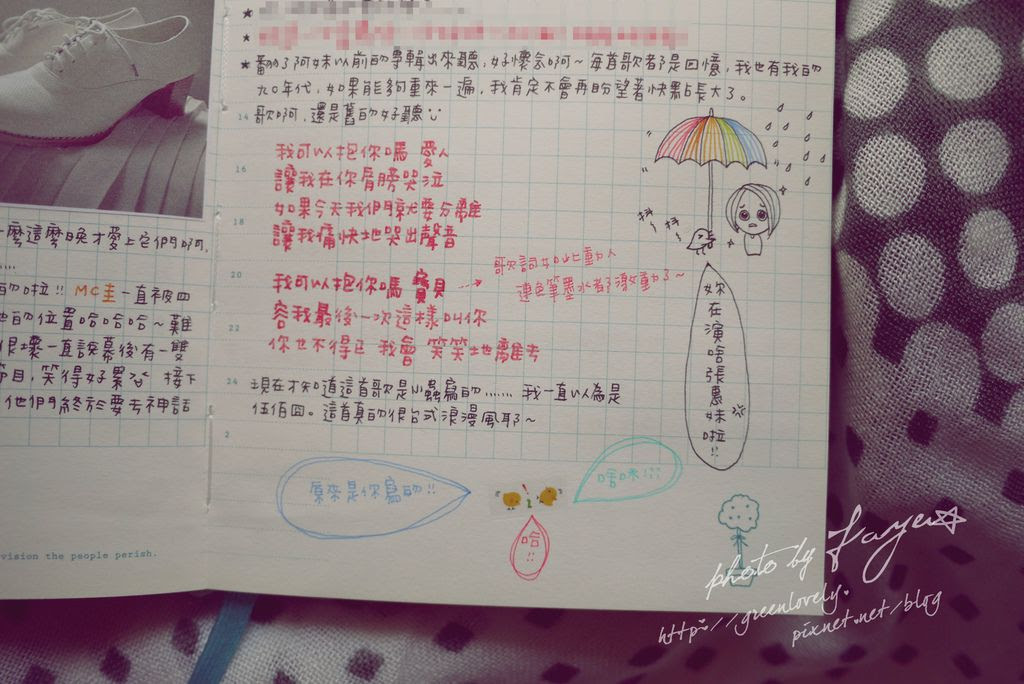 一麼這麼晚才愛上它們啊,
......
的啦!! MC圭一直被四
他的位置哈哈哈~難
很壞一直說幕後有一雙
節目,笑得好累 接下
他們終於要去神話
vision the people perish.
★
★
★ 翻了阿妹以前的專輯出來聽,好懷念啊~每首歌都是回憶,我也有我的
九0年代,如果能夠重來一遍,我肯定不會再盼望著快點長大了。
14 歌啊,還是舊的好聽
我可以抱你嗎 愛人
16 讓我在你肩膀哭泣
如果今天我們就要分離
18 讓我痛快地哭出聲音
20 我可以抱你嗎 寶貝
容我最後一次這樣叫你
22 你也不得已 我會 笑笑地離去
歌詞如此動人
連色筆墨水都激動了~
24 現在才知道這首歌是小蟲寫的...... 我一直以為是
伍佰囧。這首真的很台式浪漫風耶~
2
抖 抖
妳在演啥張惠妹啦!!
原來是你寫的!!
啥咪!!!
哈!!
photo by Faye
http://greenlovely.
pixnet.net/blog